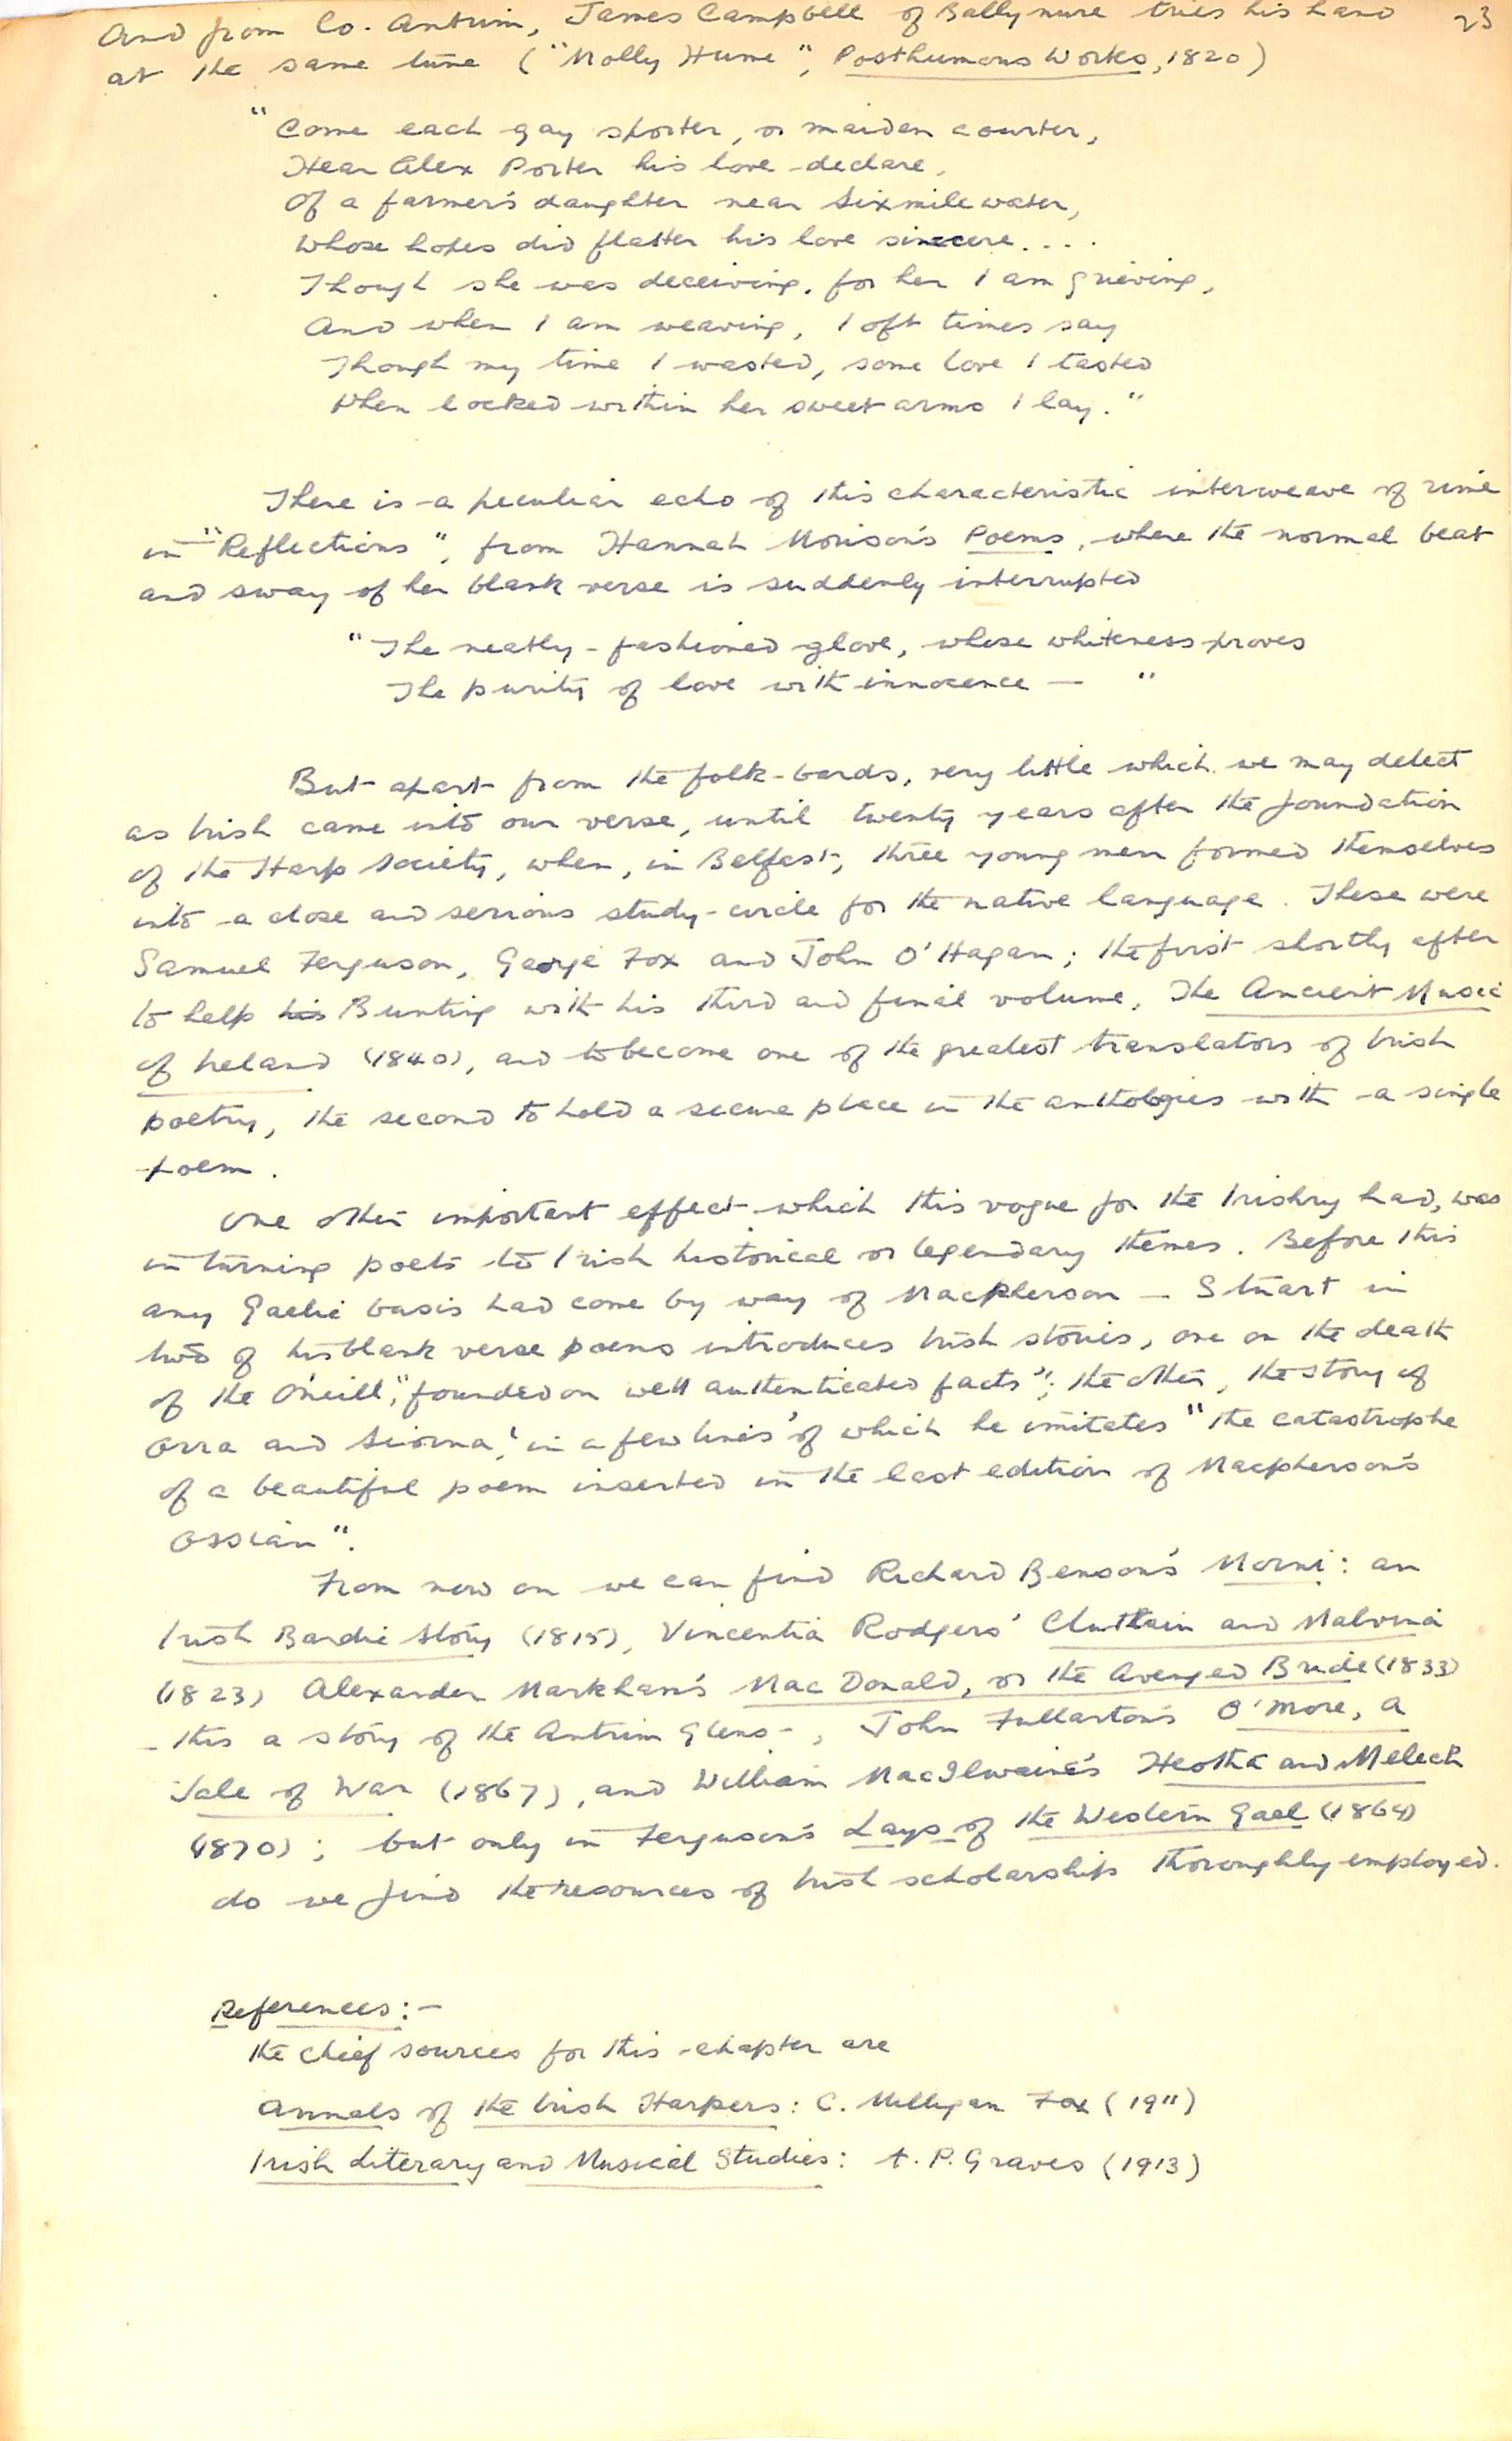 And from Co. Antrim, James Campbell of Ballynure tries his hand 23
at the same tune ("Molly Hume", Posthumous Works, 1820)
"Come each gay sporter, or maiden courter,
Hear Alex Porter his love declare,
Of a farmer's daughter near Sixmilewater,
Whose hopes did flatter his love sincere....
Though she was deceiving, for her I am grieving,
And when I am weaving, I oft times say
Though my time I wasted, some love I tasted
When locked within her sweet arms I lay."
There is a peculiar echo of this characteristic interweave of rime
in "Reflections", from Hannah Morison's Poems, where the normal beat
and sway of her blank verse is suddenly interrupted
"The neatly-fashioned glove, whose whiteness proves
The purity of love with innocence — "
But apart from the folk-bards, very little which we may detect
as Irish came into our verse, until twenty years after the foundation
of the Harp Society, when, in Belfast, three young men formed themselves
into a close and serious study-circle for the native language. These were
Samuel Ferguson, George Fox and John O'Hagan; the first shortly after
to help his Bunting with his third and final volume, The Ancient Music
of Ireland (1840), and to become one of the greatest translators of Irish
poetry, the second to hold a secure place in the anthologies with a single
poem.
One other important effect which this vogue for the Irishry had, was
in turning poets to Irish historical or legendary themes. Before this
any Gaelic basis had come by way of Macpherson — Stuart in
two of his blank verse poems introduces Irish stories, one on the death
of the O'Neill, "founded on well authenticated facts"; the other, the story of
Orra and Siorna, 'in a few lines' of which he imitates "the catastrophe
of a beautiful poem inserted in the last edition of Macpherson's
Ossian".
From now on we can find Richard Benson's Morni: an
Irish Bardic Story (1815), Vincentia Rodgers' Cluthain and Malvina
(1823) Alexander Markham's Mac Donald, or the Avenged Bride (1833)
- this a story of the Antrim Glens -, John Fullarton's O'More, a
Tale of War (1867), and William MacIlwaine's Heotha and Melech
(1870); but only in Ferguson's Lays of the Western Gael (1864)
do we find the resources of Irish scholarship thoroughly employed.
References:-
The chief sources for this chapter are
Annals of the Irish Harpers: C. Milligan Fox (1911)
Irish Literary and Musical Studies: A. P. Graves (1913)